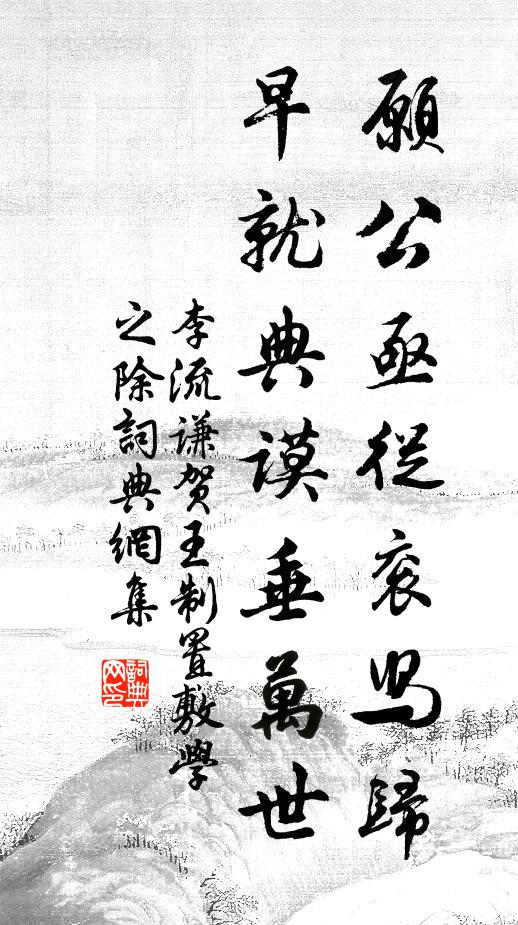 願公亟從袞舄歸
早就典謨垂萬世
李流謙賀王制置敷學
之除詞典網集
詞典网印